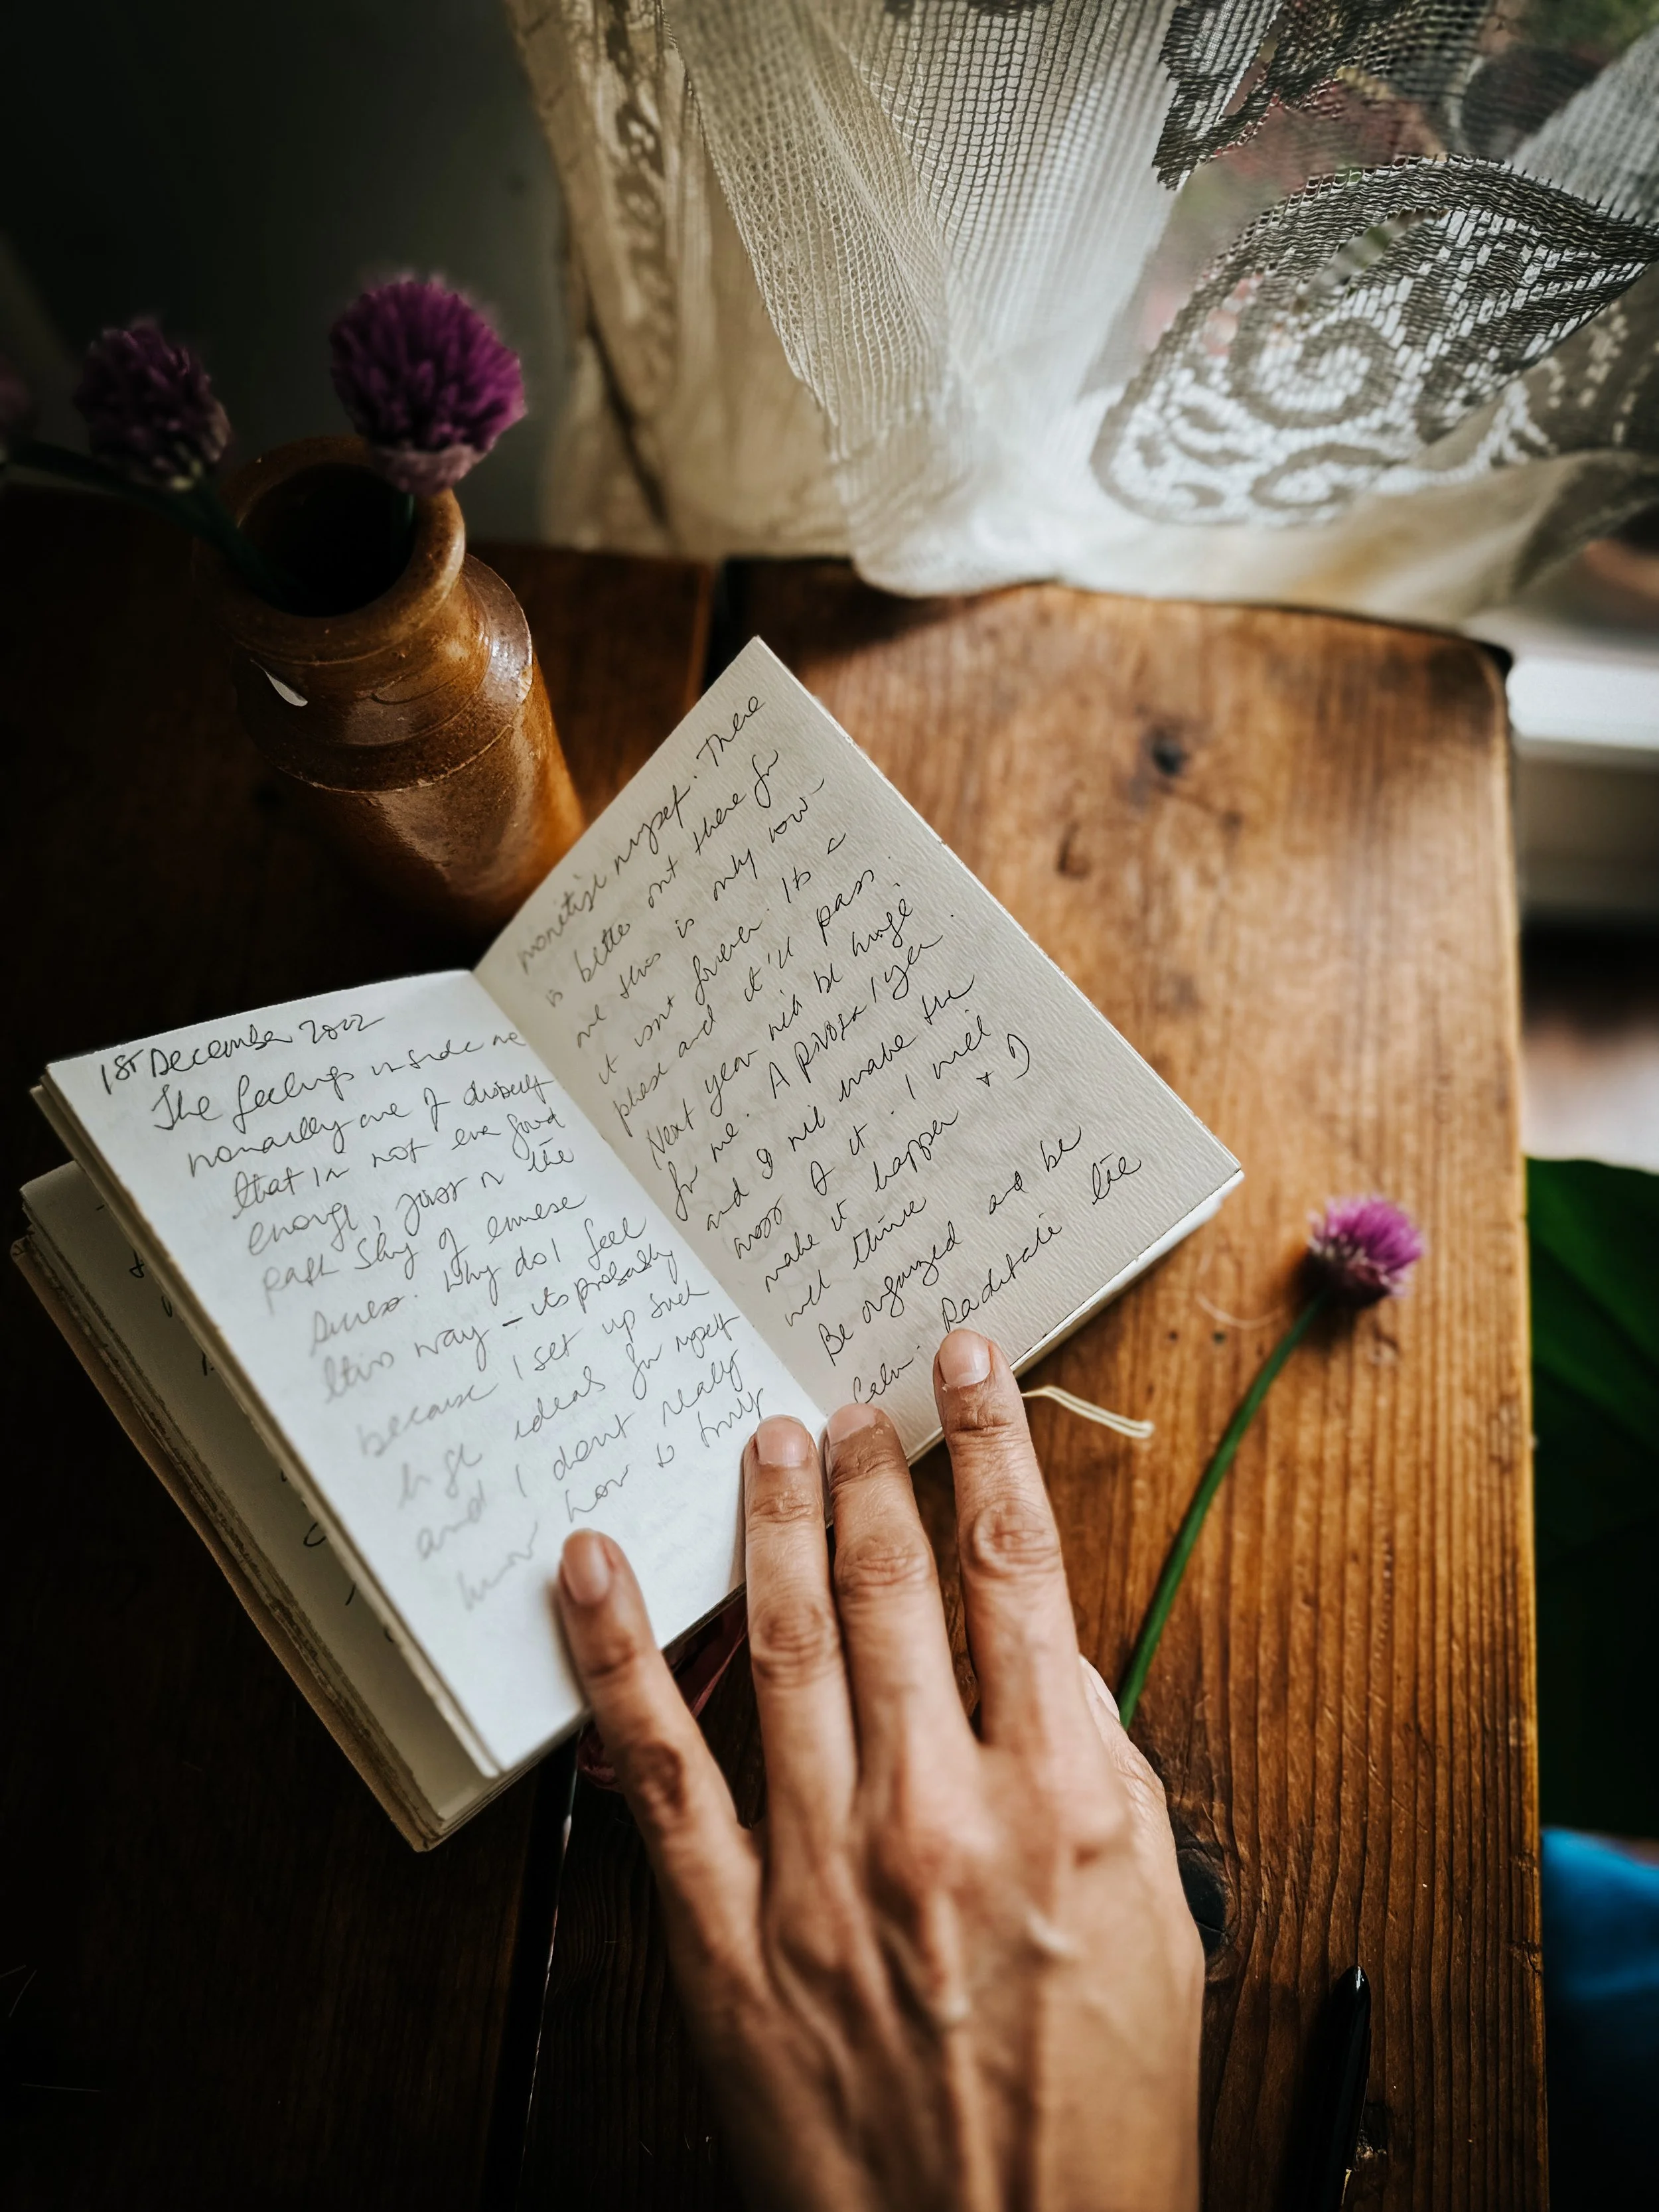 1ST December 2022
The feelings inside me
normally are of
that im not even good
enough, just in the
path of immense
success. Why do I feel
this way - its probably
because I set up such
high ideals for myself
and I dont really
know how to truly
monetize myself. There
is better out there for
me this is only now -
it isnt forever. Its a
phase and it'll pass.
Next year will be huge
for me. A pivotal year.
and I will make the
most of it. I will
make it happen + I
will thrive
Be organized and be
calm. the